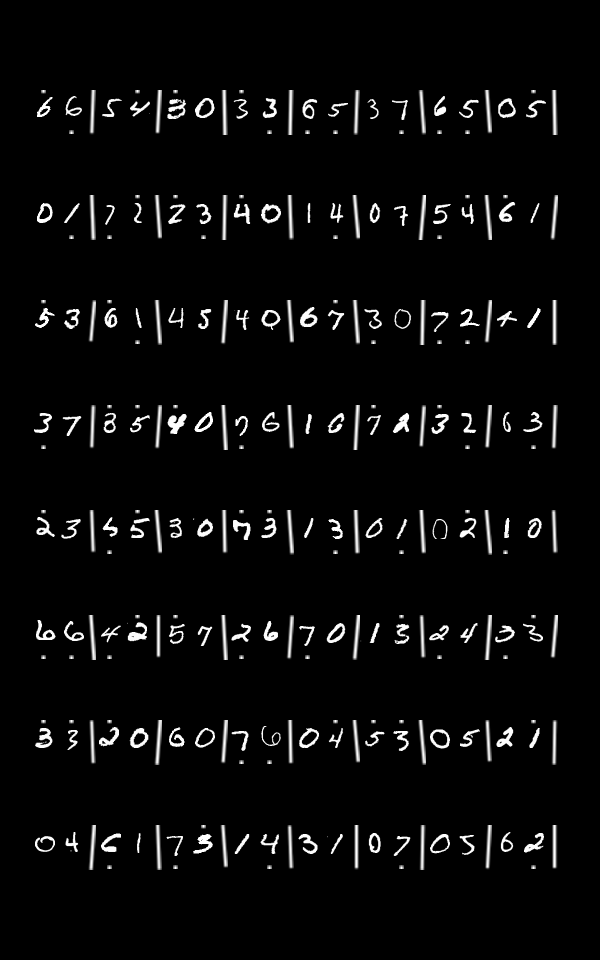 6 6 | 5 4 | 3 0 | 3 3 | 6 5 | 3 7 | 6 5 | 0 5 |
0 1 | 7 2 | 2 3 | 4 0 | 1 4 | 0 7 | 5 4 | 6 1 |
5 3 | 6 1 | 4 5 | 4 0 | 6 7 | 3 0 | 7 2 | 4 1 |
3 7 | 3 5 | 4 0 | 7 6 | 1 6 | 7 2 | 3 2 | 6 3 |
2 3 | 5 5 | 3 0 | 7 3 | 1 3 | 0 1 | 0 2 | 1 0 |
6 6 | 4 2 | 5 7 | 2 6 | 7 0 | 1 3 | 2 4 | 3 3 |
3 3 | 2 0 | 6 0 | 7 6 | 0 4 | 5 3 | 0 5 | 2 1 |
0 4 | 6 1 | 7 3 | 1 4 | 3 1 | 0 7 | 0 5 | 6 2 |